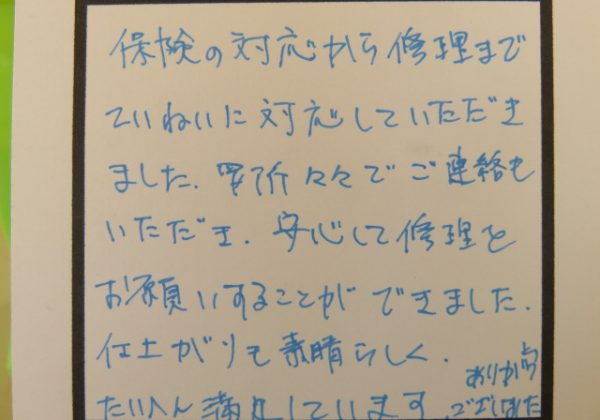 保険の対応から修理まで
ていねいに対応していただき
ました。要所々々でご連絡も
いただき、安心して修理を
お願いすることができました。
仕上がりも素晴らしく、
たいへん満足しています
ありがとう
ございました